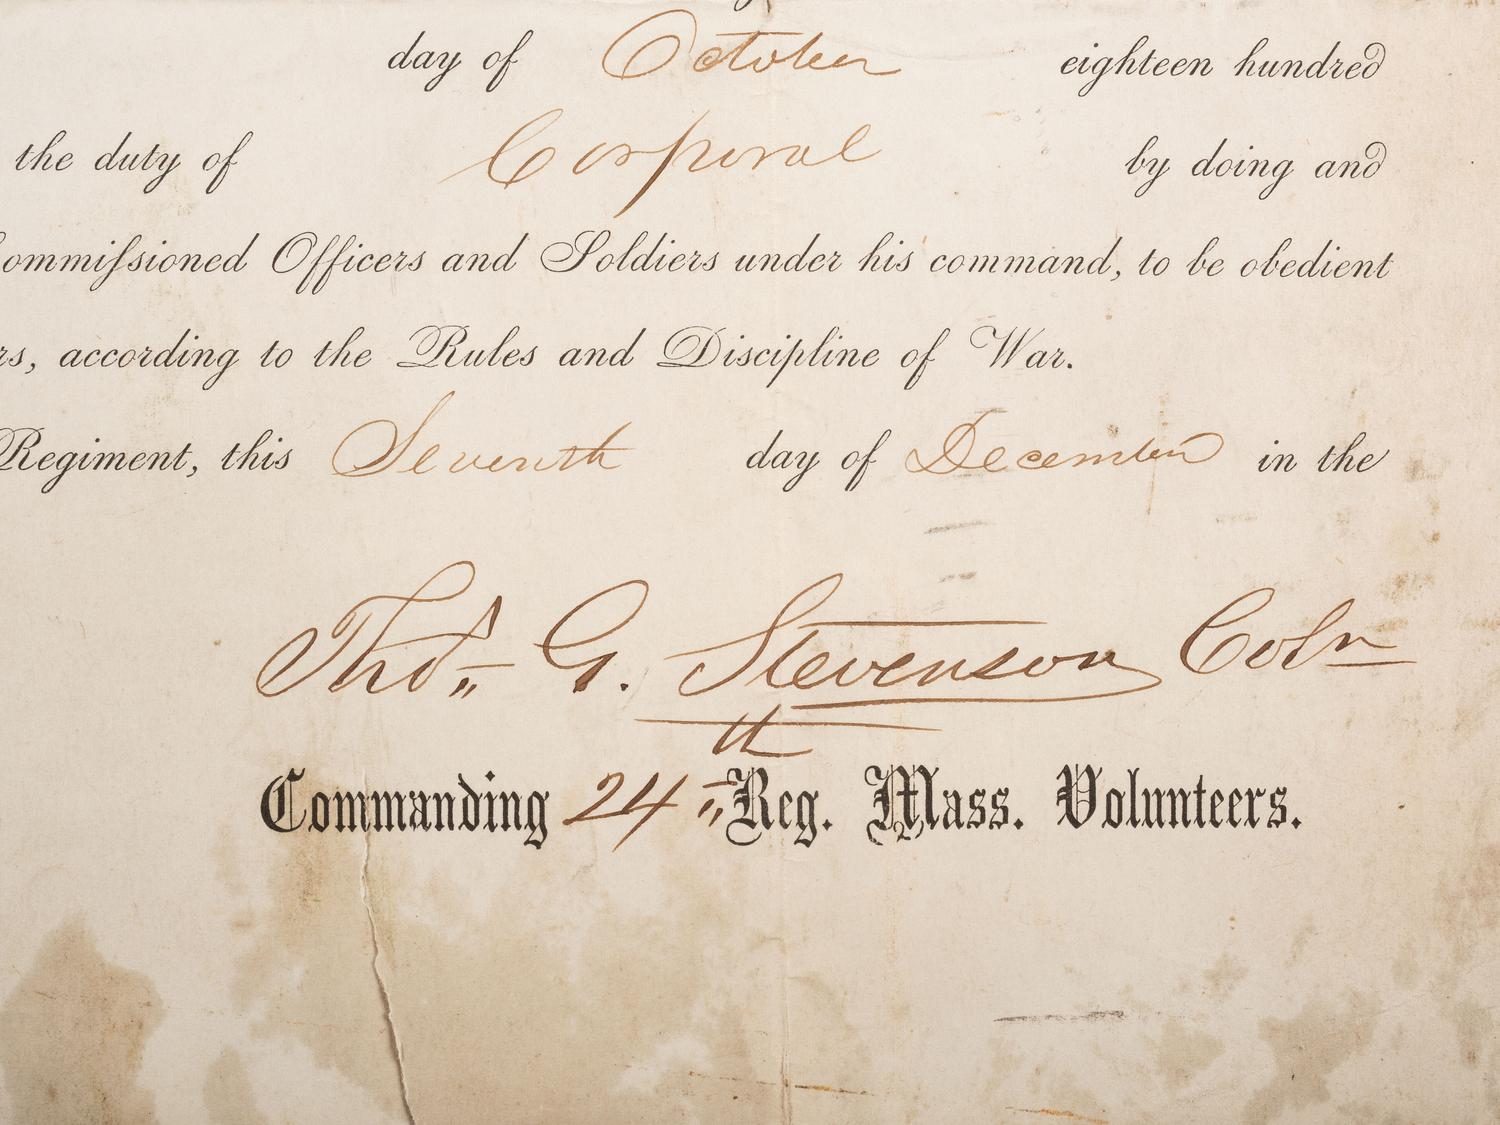 day of October eighteen hundred
the duty of Corporal by doing and
ommissioned Officers and Soldiers under his command, to be obedient
rs, according to the Rules and Discipline of War.
Regiment, this Seventh day of December in the
Thos. G. Stevenson Coln
th
Commanding 24 " Reg. Mass. Volunteers.